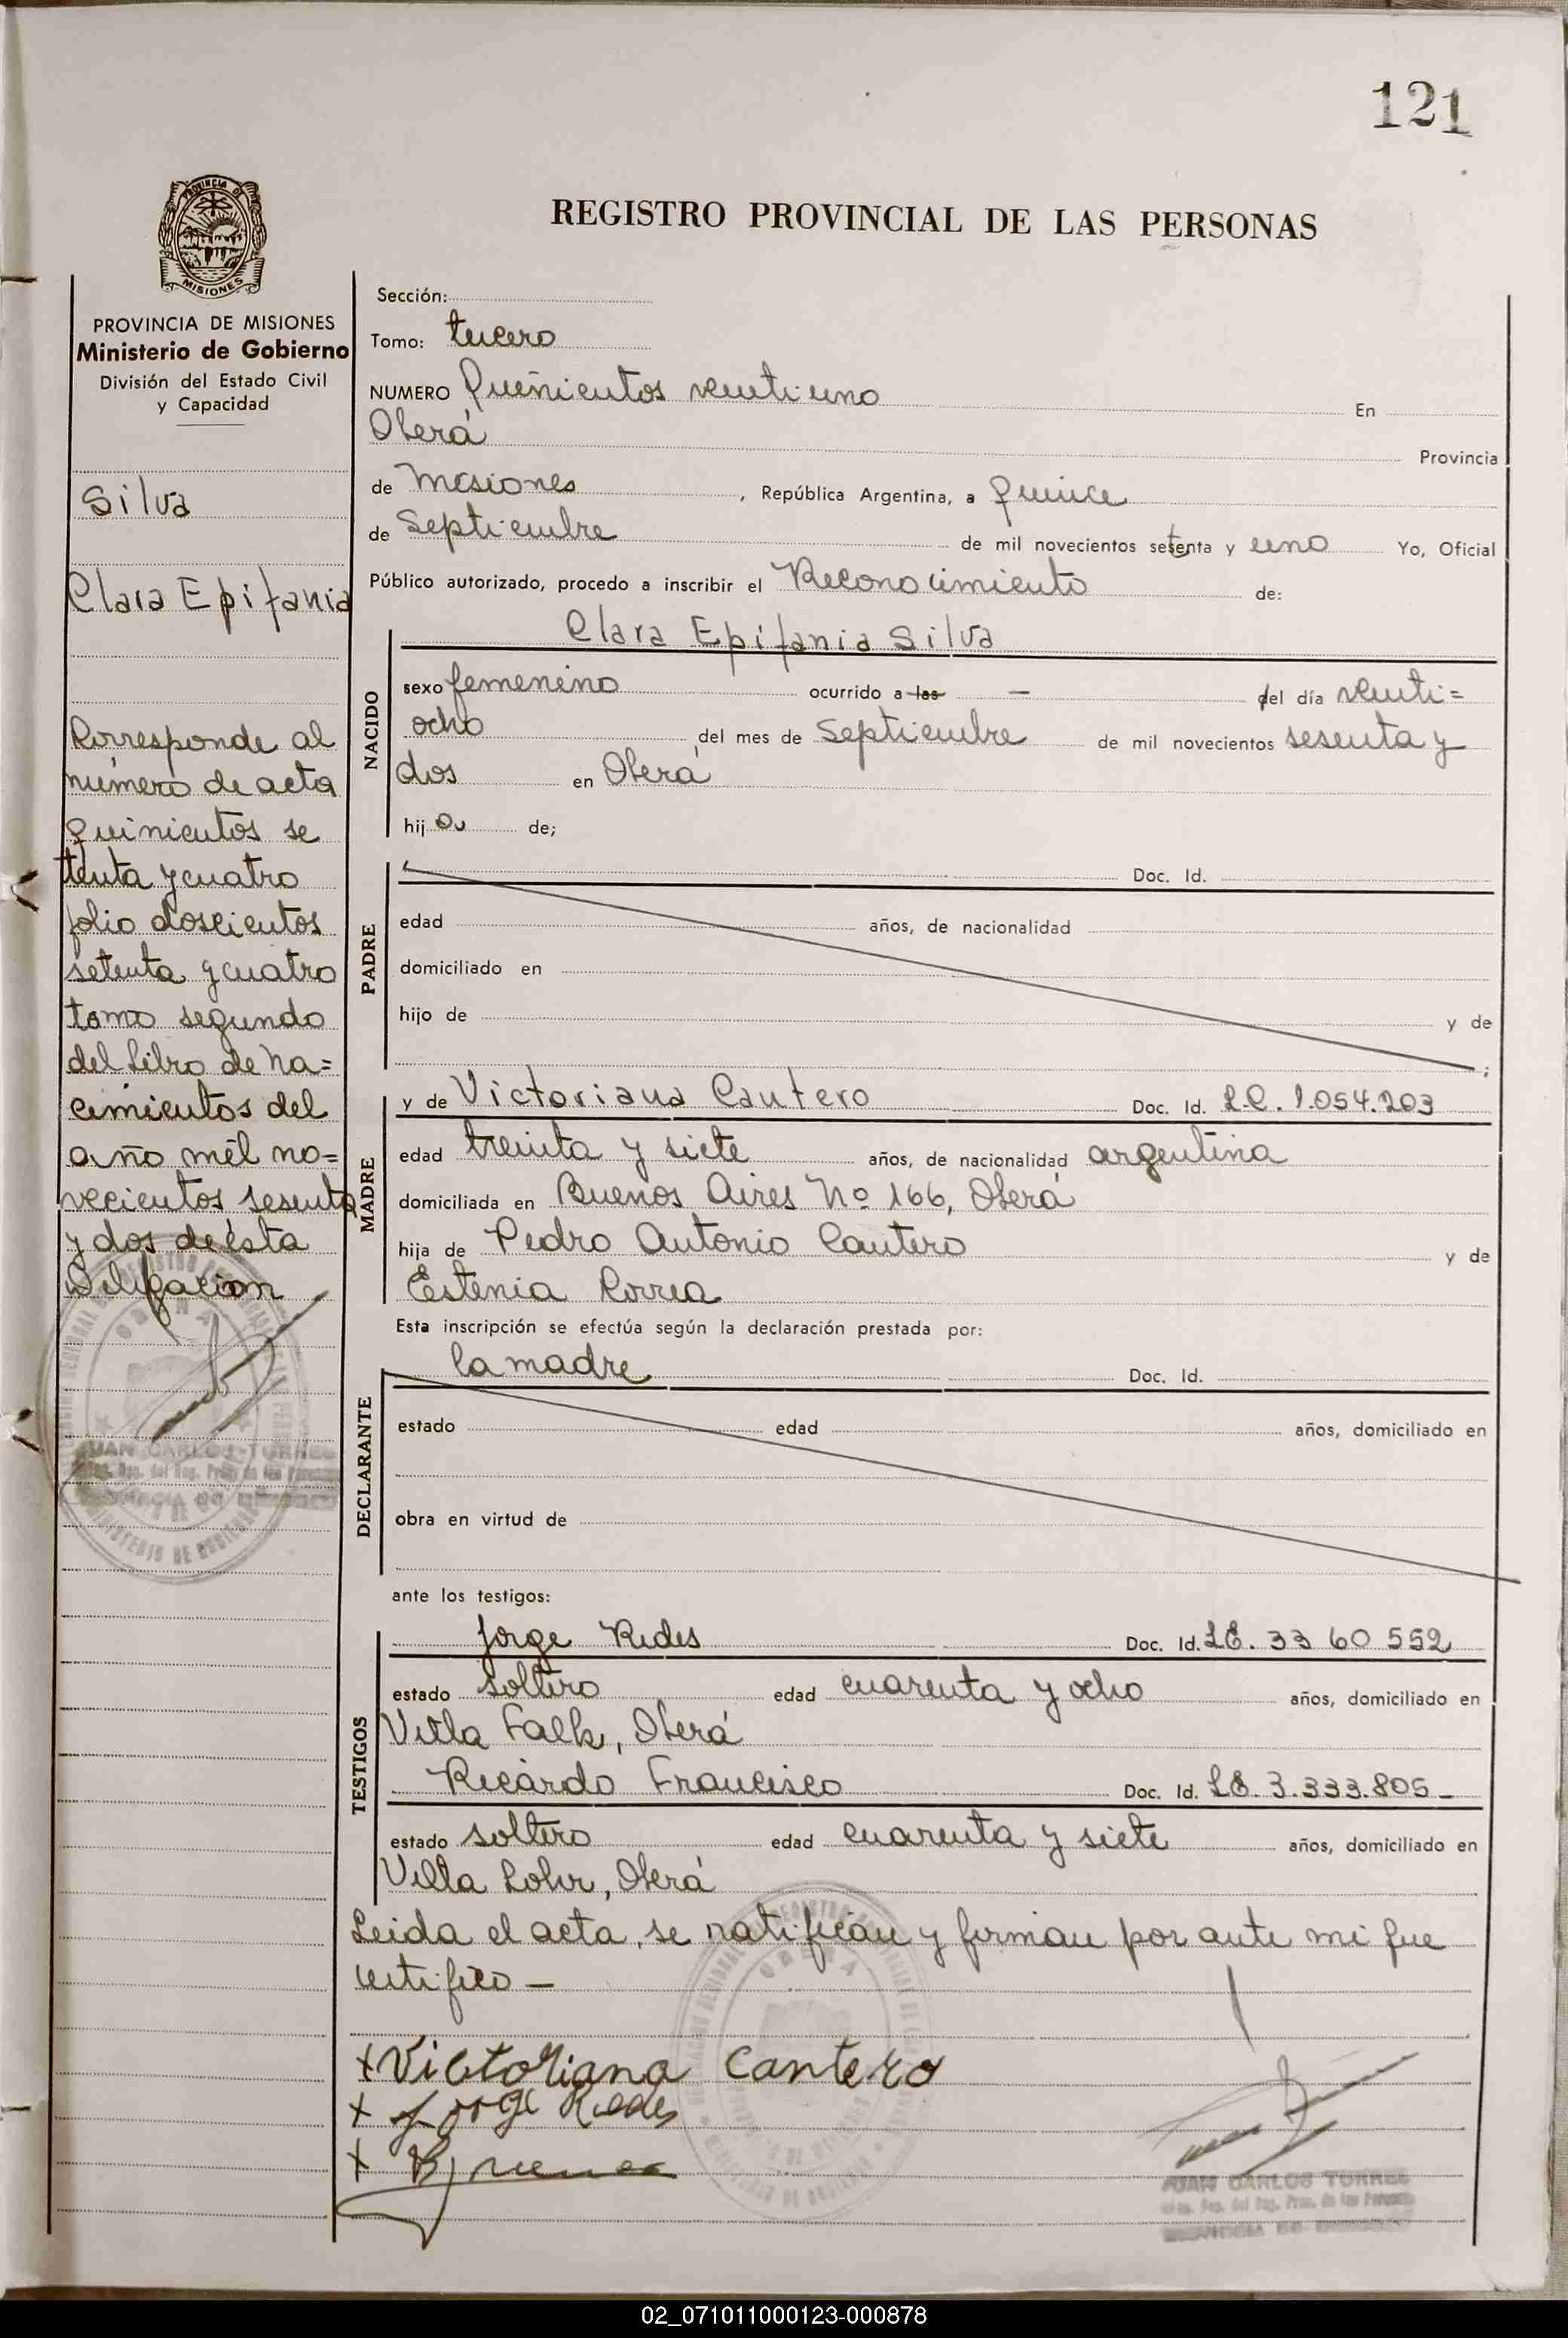 121
PROVINCIA DE MISIONES
REGISTRO PROVINCIAL DE LAS PERSONAS
PROVINCIA DE MISIONES
Ministerio de Gobierno
División del Estado Civil
y Capacidad
Silva
Clara Epifania
Corresponde al
número de acta
quinientos se
tenta y cuatro
folio doscientos
setenta y cuatro
tomo segundo
del Libro de Na=
cimientos del
año mil no=
vecientos sesenta
y dos de ésta
Delegacion
JUAN CARLOS TORRES
Sección:
Tomo: tercero
NUMERO Quinientos veintiuno En
Oberá Provincia
de Misiones, República Argentina, a quince
de Septiembre de mil novecientos setenta y uno Yo, Oficial
Público autorizado, procedo a inscribir el Reconocimiento de:
NACIDO
Clara Epifania Silva
sexo femenino ocurrido a las — del día veinti=
ocho del mes de Septiembre de mil novecientos sesenta y
dos en Oberá
hij a de;
PADRE
Doc. Id.
edad años, de nacionalidad
domiciliado en
hijo de y de
;
MADRE
y de Victoriana Cantero Doc. Id. L.C. 1.054.203
edad treinta y siete años, de nacionalidad argentina
domiciliada en Buenos Aires Nº 166, Oberá
hija de Pedro Antonio Cantero y de
Estenia Correa
Esta inscripción se efectúa según la declaración prestada por:
DECLARANTE
la madre Doc. Id.
estado edad años, domiciliado en
obra en virtud de
ante los testigos:
TESTIGOS
Jorge Rides Doc. Id. LE. 33 60 552
estado soltero edad cuarenta y ocho años, domiciliado en
Villa Falk, Oberá
Ricardo Francisco Doc. Id. LE 3.333.805_
estado soltero edad cuarenta y siete años, domiciliado en
Villa Lohr, Oberá
Leida el acta, se ratifican y firman por ante mi que
certifico —
+ Victoriana Cantero
+ Jorge
+
JUAN CARLOS TORRES
02_071011000123-000878